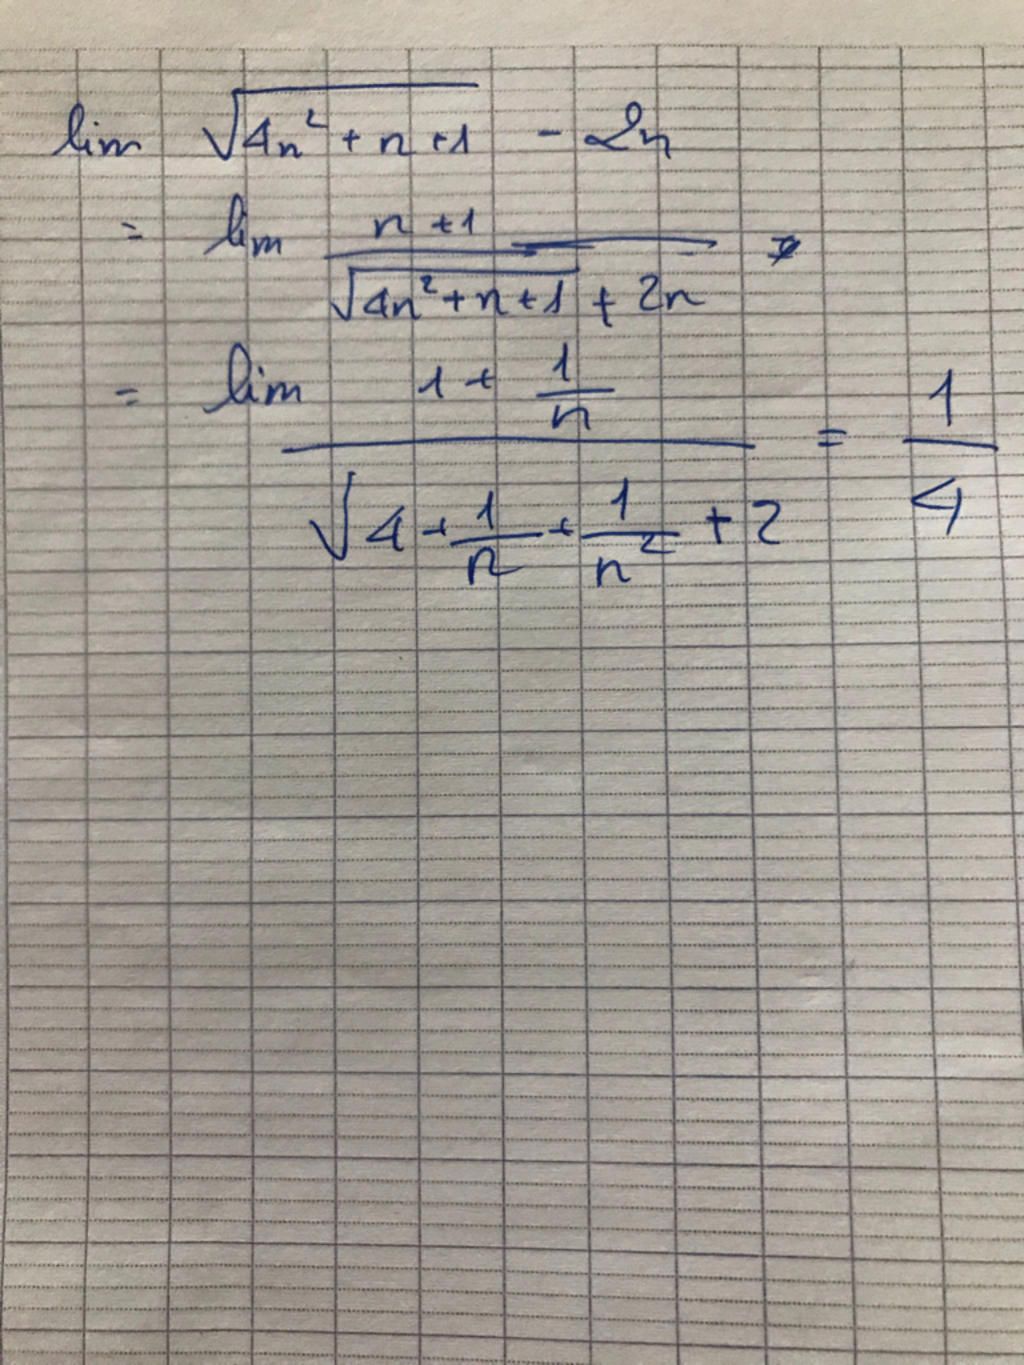 lim √(4n² + n + 1) - 2n
= lim (n + 1) / (√(4n² + n + 1) + 2n)
= lim (1 + 1/n) / (√(4 + 1/n + 1/n²) + 2) = 1/4